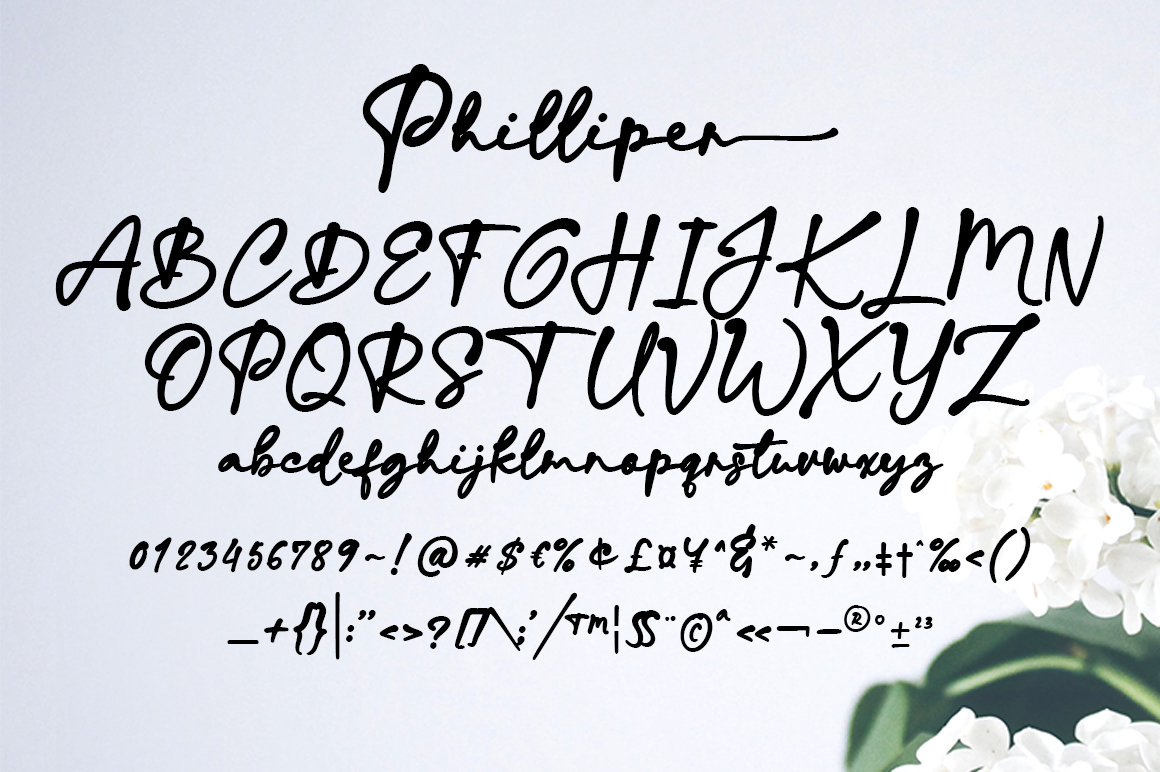 Phillipen
ABCDEFGHIJKLMN
OPQRSTUVWXYZ
abcdefghijklmnopqrstuvwxyz
0123456789~!@#$€%¢£¤¥^&*~,ƒ„‡†ˆ‰<()
_+{}|:”<>?[]\;’/™¦§¨©ª«¬–®°±²³